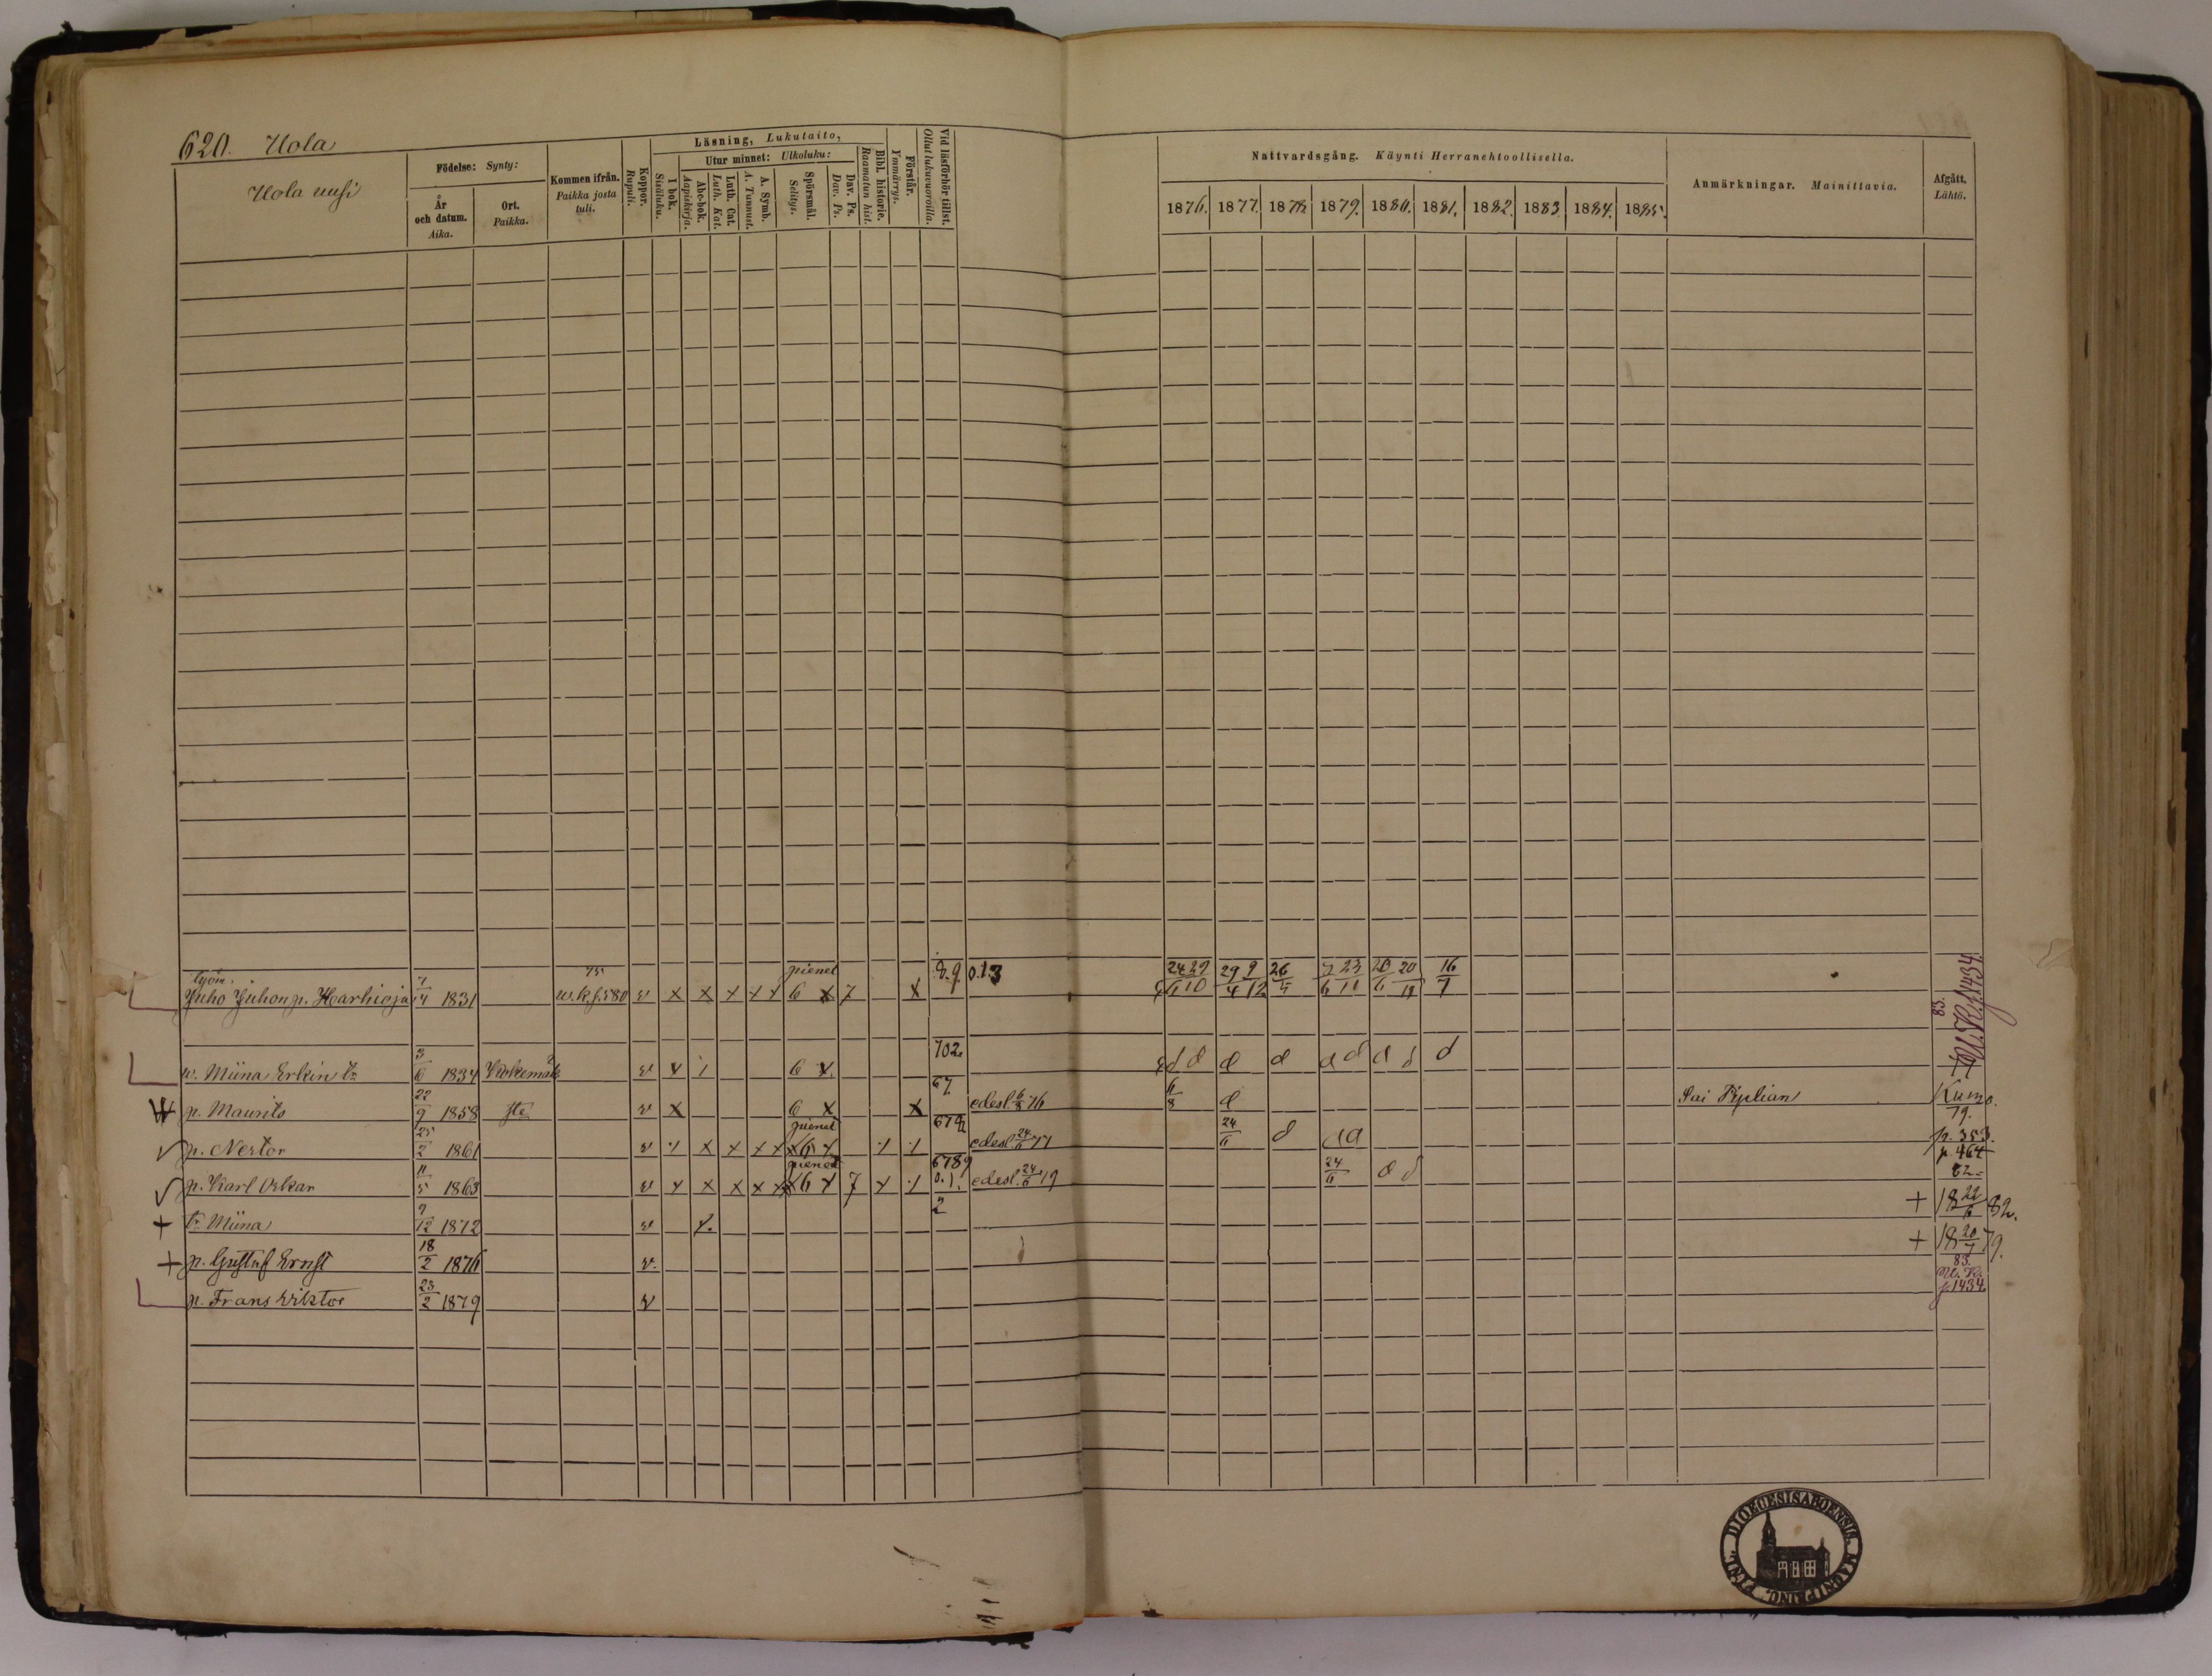 620. Uola
Uola uusi
Födelse: Synty:
År och datum. Aika.
Ort. Paikka.
Kommen ifrån. Paikka josta tuli.
Koppor. Rupuli.
Läsning, Lukutaito,
I bok. Sisäluku.
Utur minnet: Ulkoluku:
Abc-bok. Aapiskirja.
Luth. Cat. Luth. Kat.
A. Symb. A. Tunnust.
Spörsmål. Selitys.
Dav. Ps. Dav. Ps.
Bibl. historie. Raamatun hist.
Förstår. Ymmärrys.
Vid läsförhör tillst. Ollut lukuvuoroilla.
Nattvardsgång. Käynti Herranehtoollisella.
1876. 1877. 1878. 1879. 1880. 1881. 1882. 1883. 1884. 1885.
Anmärkningar. Mainittavia.
Afgått. Lähtö.
työm. 75 pienet
Juho Juhon p. Haarhioja 7/4 1831 w.k.s. 580 v x x x x x 6 x 7 x 8.9 0.1.3 24/6 29/10 29/4 9/12 26/5 23/11 20/6 20/11 16/7
83. W.K. p. 1434.
w. Miina Erkin tr. 3/6 1834 Kokemäk v x 6 x 702 d d d d d d d d d
p. Maurits 22/9 1858 v x 6 x x 67. edesl. 6/8 76 6/8 d Sai Kumo. 79.
p. Nestor 25/2 1861 v x x x x x pienet 6 x 679 edesl. 24/6 77 24/6 d d d p. 353.
p. Karl Oskar 11/5 1863 v x x x x x pienet 6 x 7 x 6789 0.1. edesl. 24/6 79 24/6 d d p. 464 82
+ tr. Miina 9/12 1872 v 2 + 18 22/6 82.
+ p. Gustaf Ernst 18/2 1876 v. + 18 20/7 79.
p. Frans Viktor 23/2 1879 v 83. W. K. p. 1434.
DIOECESIS ABOENSIS